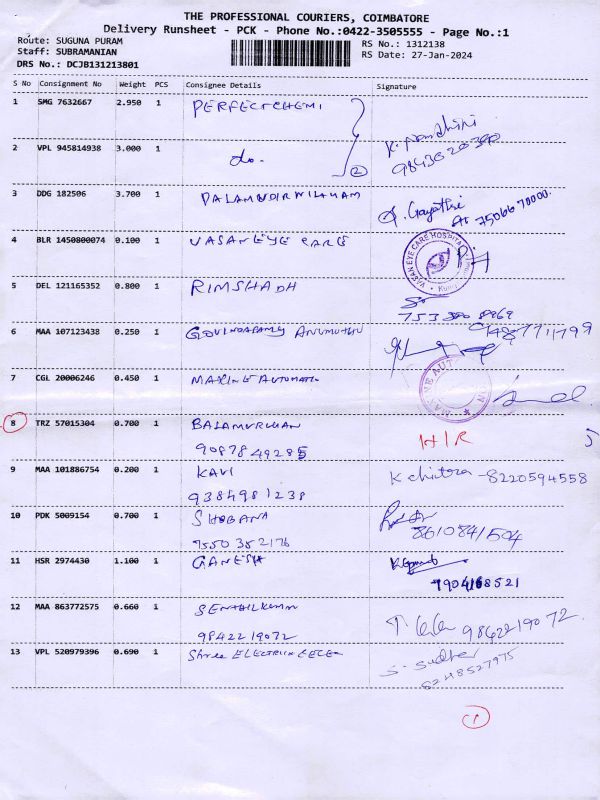 THE PROFESSIONAL COURIERS, COIMBATORE
Delivery Runsheet - PCK - Phone No.:0422-3505555 - Page No.:1
Route: SUGUNA PURAM RS No.: 1312138
Staff: SUBRAMANIAN RS Date: 27-Jan-2024
DRS No.: DCJB131213801
S No Consignment No Weight PCS Consignee Details Signature
1 SMG 7632667 2.950 1 PERFECTCHEMI
2 VPL 945814938 3.000 1 do. 2
3 DDG 182506 3.700 1 PALAMUDIRNILAYAM
75066 70000.
4 BLR 1450800074 0.100 1 VASAN EYE CARE
VASAN EYE CARE HOSPITAL
5 DEL 121165352 0.800 1 RIMSHADH
6 MAA 107123438 0.250 1
7 CGL 20006246 0.450 1 MARINE AUTOMATI
8 TRZ 57015304 0.700 1 BALAMURUGAN H/R
90878 49285
9 MAA 101886754 0.200 1 KAVI K chitra - 8220594558
9384981238
10 PDK 5009154 0.700 1 SHOBANA
9550352176 8610841504
11 HSR 2974430 1.100 1 GANESH
7904168521
12 MAA 863772575 0.660 1 SENTHILKUMAR
9842219072 9842219072.
13 VPL 520979396 0.690 1 Shree S. Sudha
8248527975
1